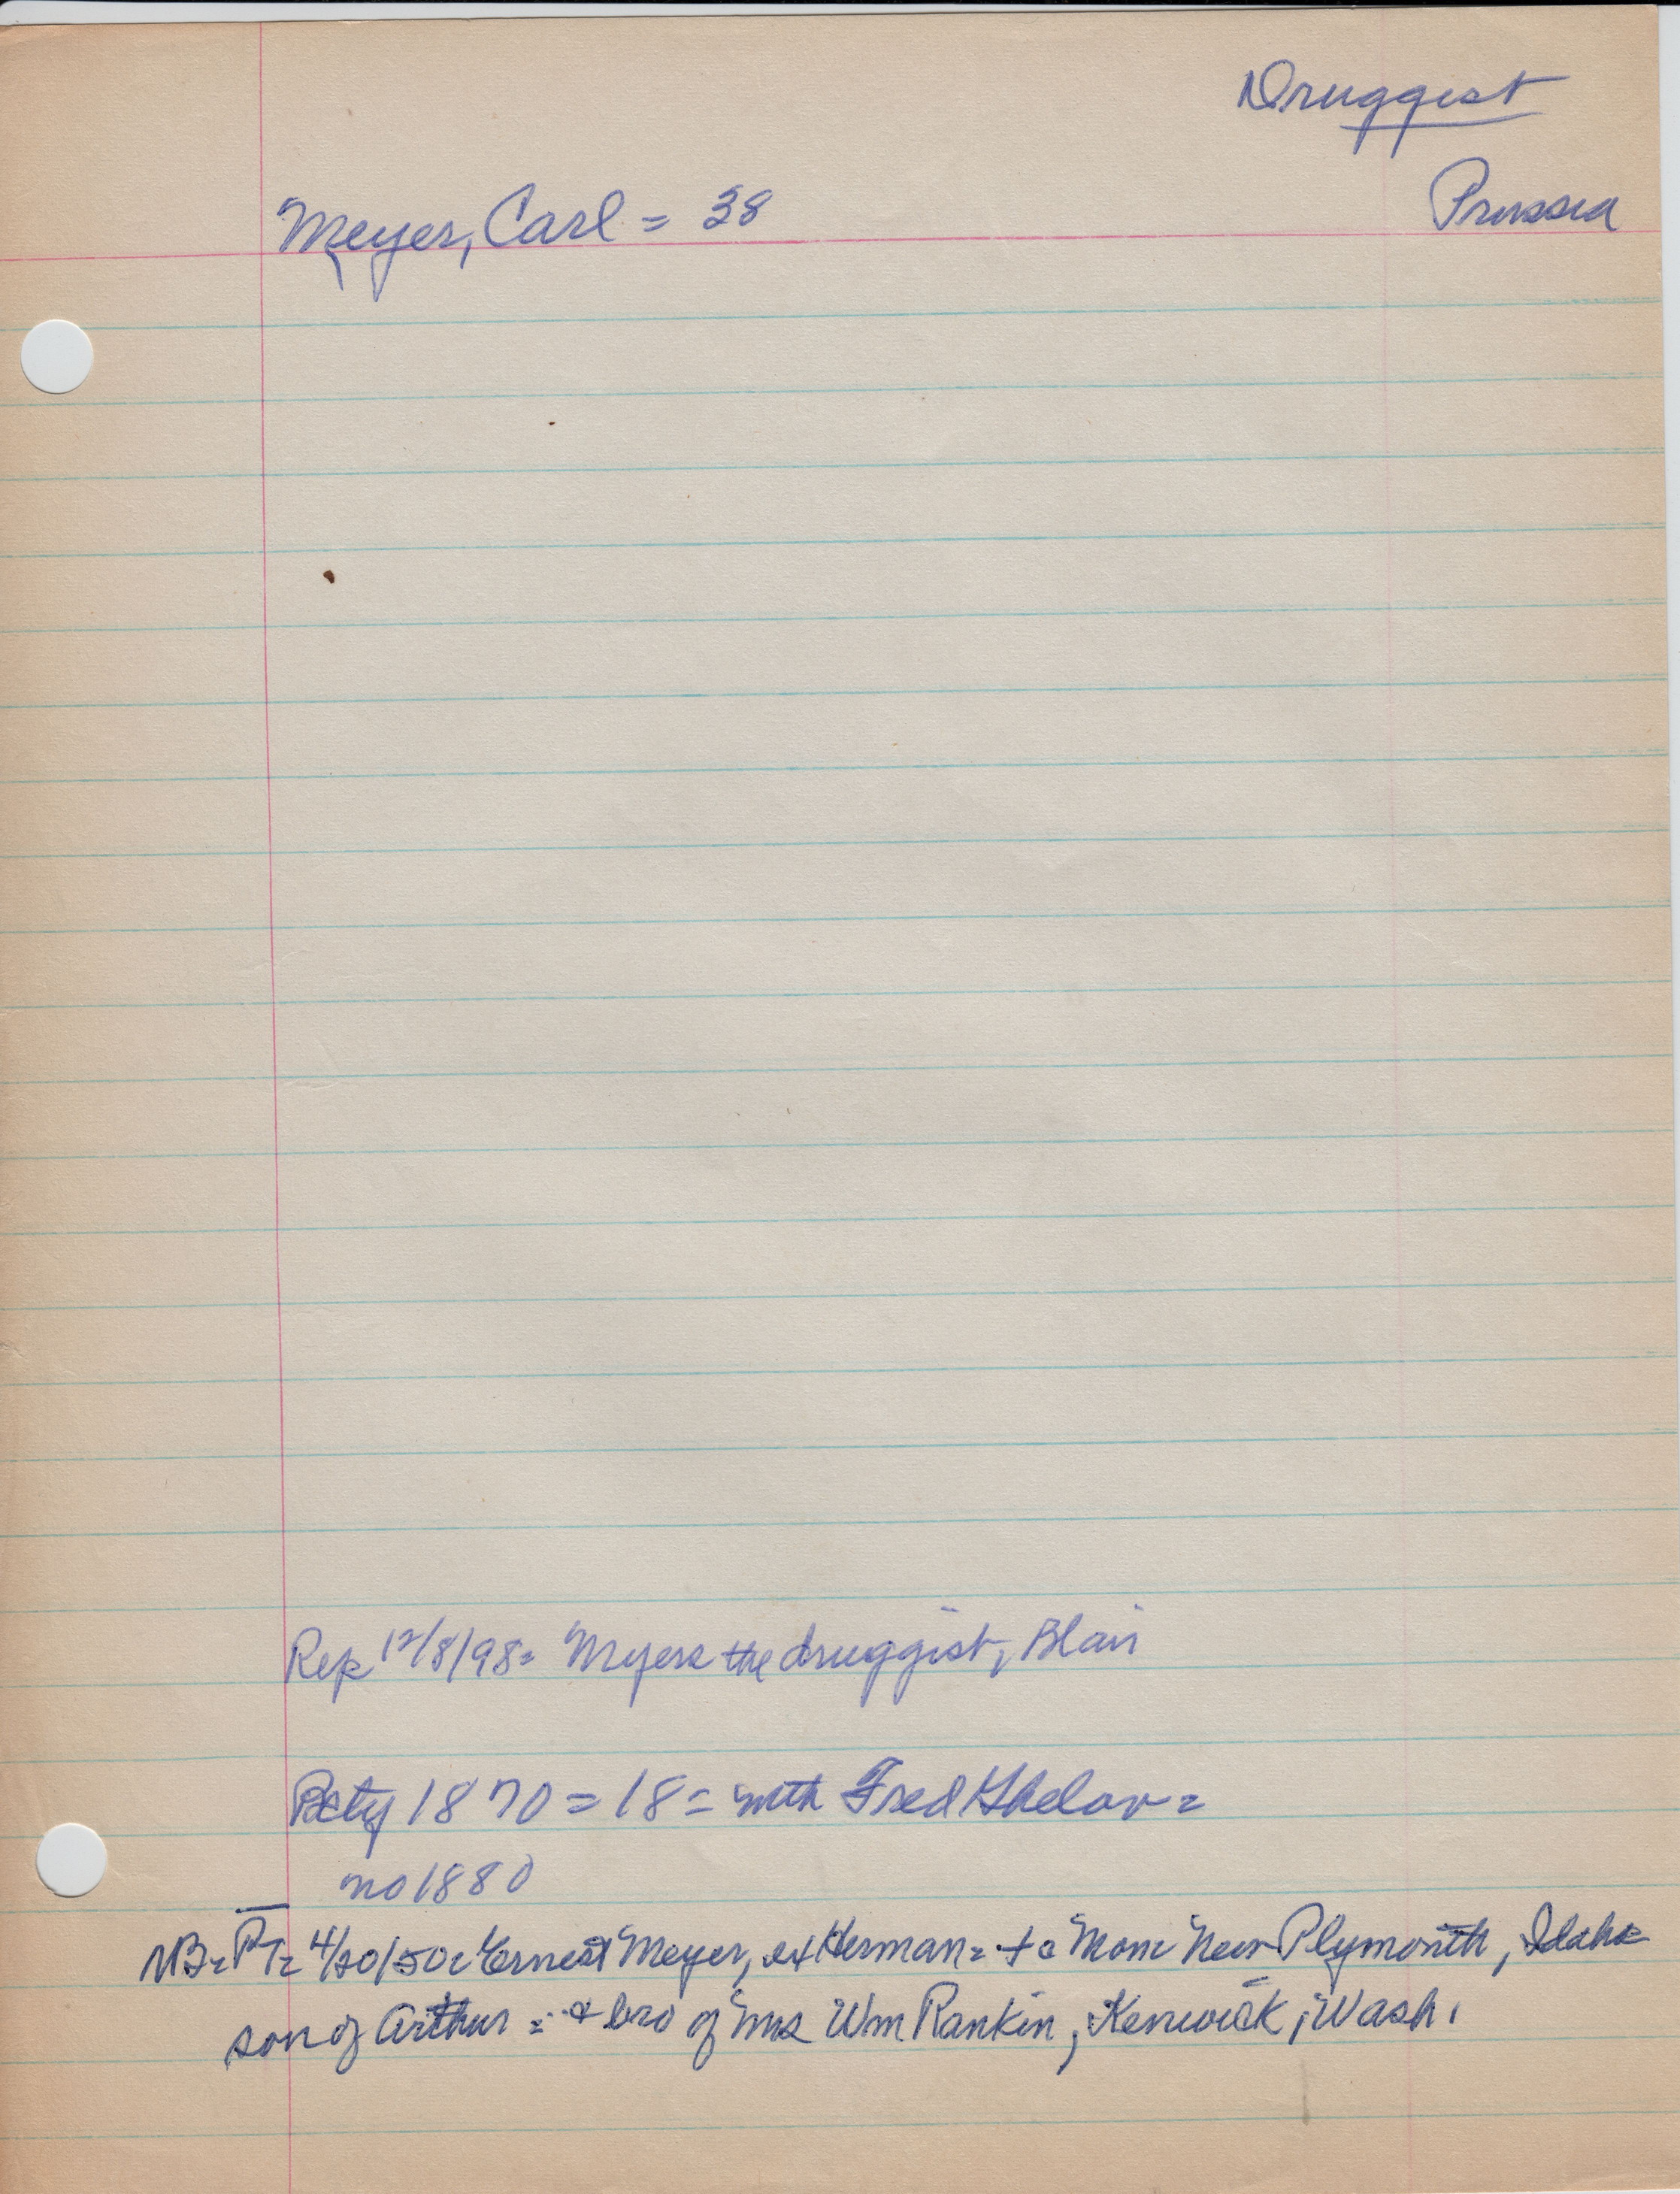 Druggist
Prussia
Meyer, Carl = 38
Rep 12/8/98 = Myers the druggist, Blair
Bcty 1870 = 18 = with Fred =
no 1880
NB = PT = 4/20/50 = Ernest Meyer, ex Herman = + a Mon New Plymouth, Idaho
son of Arthur = & bro of Mrs Wm Rankin, Kenwick, Wash.